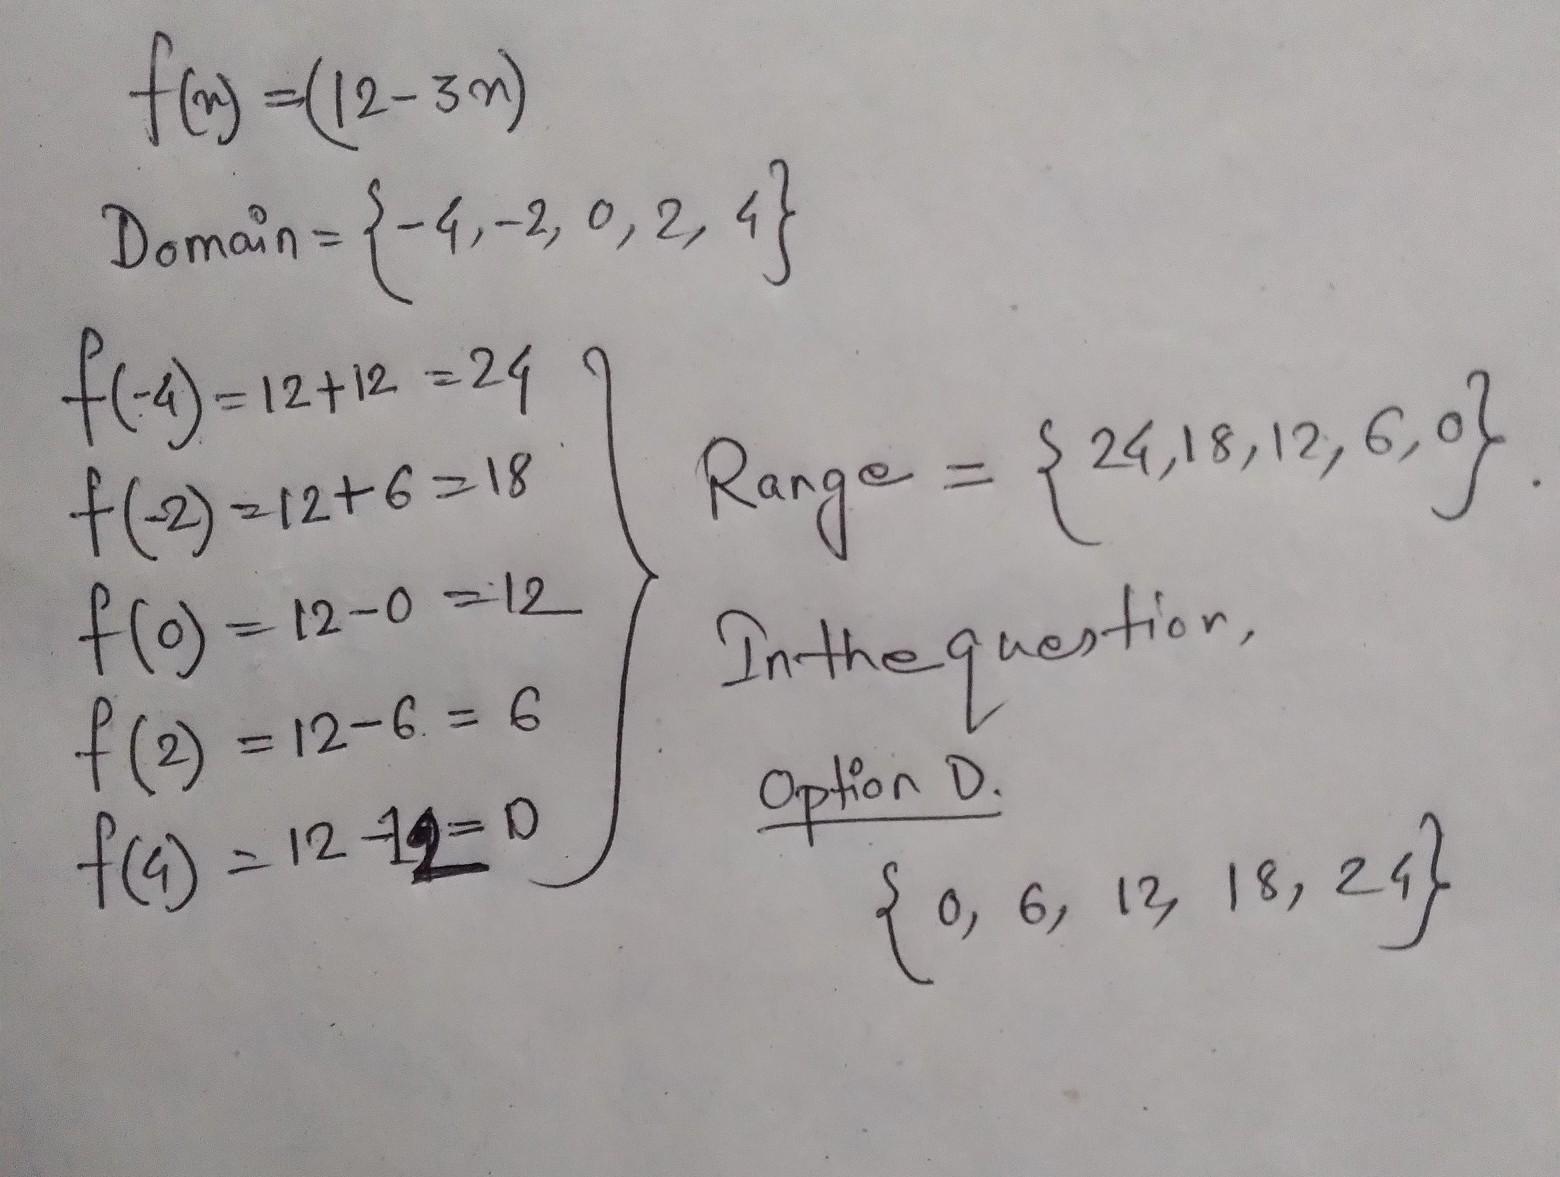 f(x) = (12-3x)
Domain = {-4, -2, 0, 2, 4}
f(-4) = 12+12 = 24
f(-2) = 12+6 = 18
f(0) = 12-0 = 12
f(2) = 12-6 = 6
f(4) = 12-12 = 0
Range = {24, 18, 12, 6, 0}.
In the question,
Option D.
{0, 6, 12, 18, 24}